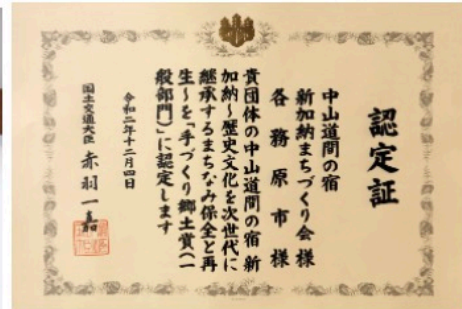 認定証
中山道間の宿
新加納まちづくり会様
各務原市様
貴団体の中山道間の宿新
加納～歴史文化を次世代に
継承するまちなみ保全と再
生～を「手づくり郷土賞(一
般部門)」に認定します
令和二年十二月四日
国土交通大臣 赤羽一嘉